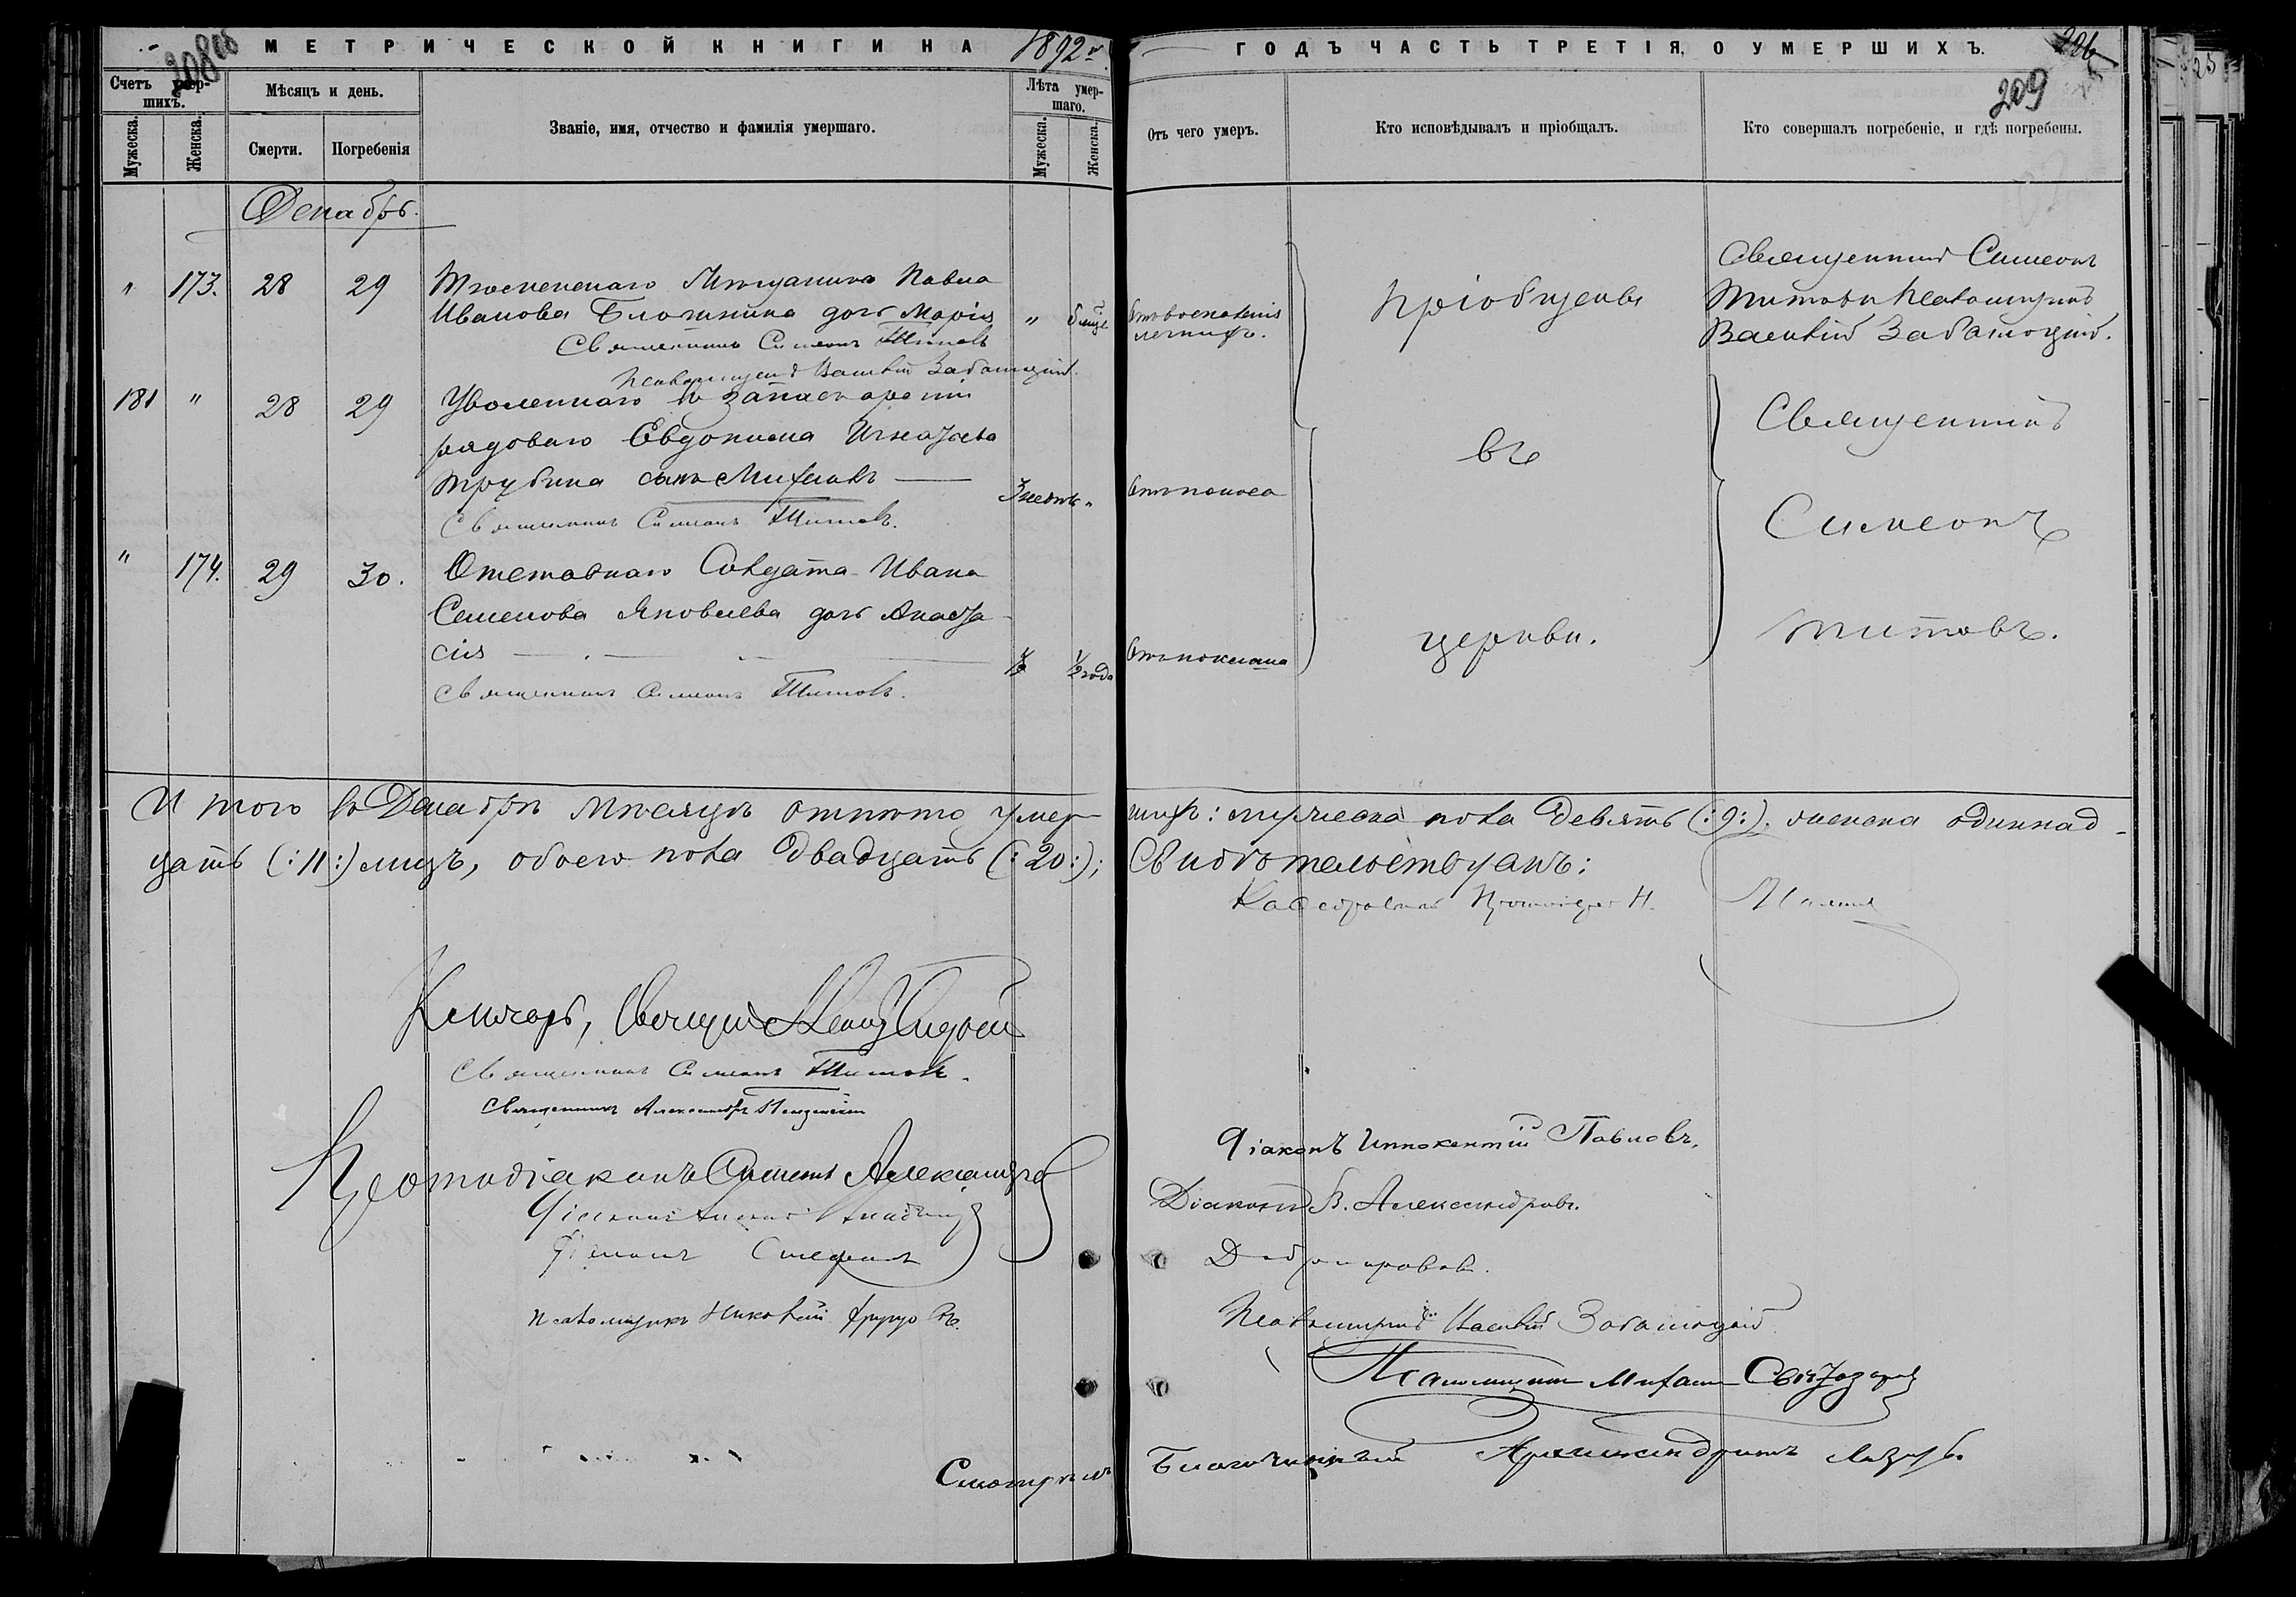 МЕТРИЧЕСКОЙ КНИГИ НА 1892 г. ГОДЪ ЧАСТЬ ТРЕТІЯ, О УМЕРШИХЪ.
208
209
Счетъ умер-
шихъ.
Мужеска.
Женска.
Мѣсяцъ и день.
Смерти.
Погребенія
Званіе, имя, отчество и фамилія умершаго.
Лѣта умер-
шаго.
Мужеска.
Женска.
Отъ чего умеръ.
Кто исповѣдывалъ и пріобщалъ.
Кто совершалъ погребеніе, и гдѣ погребены.
Декабрь.
" 173. 28 29 мѣщанина Павла
Иванова дочь Марія "
Священникъ Симеонъ Титовъ
Псаломщикъ Василій
Отъ воспаленія
легкихъ.
Пріобщены
Священникъ Симеонъ
Титовъ Псаломщикъ
Василій
181 " 28 29 Уволеннаго въ запасъ арміи
рядоваго Евдокима Игнатьева
Трубина сынъ Михаилъ
3 "
Священникъ Симеонъ Титовъ.
Отъ поноса
въ
Священникъ
Симеонъ
" 174. 29 30. Отставнаго Солдата Ивана
Семенова Яковлева дочь Анаста-
сія
1/2 года
Священникъ Симеонъ Титовъ.
церкви.
Титовъ.
Итого въ Декабрѣ мѣсяцѣ отпѣто умер-
шихъ: мужеска пола девять (:9:), женска одиннад-
цать (:11:) лицъ, обоего пола двадцать (:20:);
Свидѣтельствуемъ:
Каѳедральный Протоіерей Н.
Ключарь,
Священникъ Симеонъ Титовъ.
Священникъ Александръ
Протодіаконъ Симеонъ Александровъ
Діаконъ
Діаконъ Стефанъ
Псаломщикъ Николай
Діаконъ Иннокентій Павловъ.
Діаконъ В. Александровъ.
Псаломщикъ Василій
Псаломщикъ Михаилъ
Смотрѣлъ Благочинный Архимандритъ